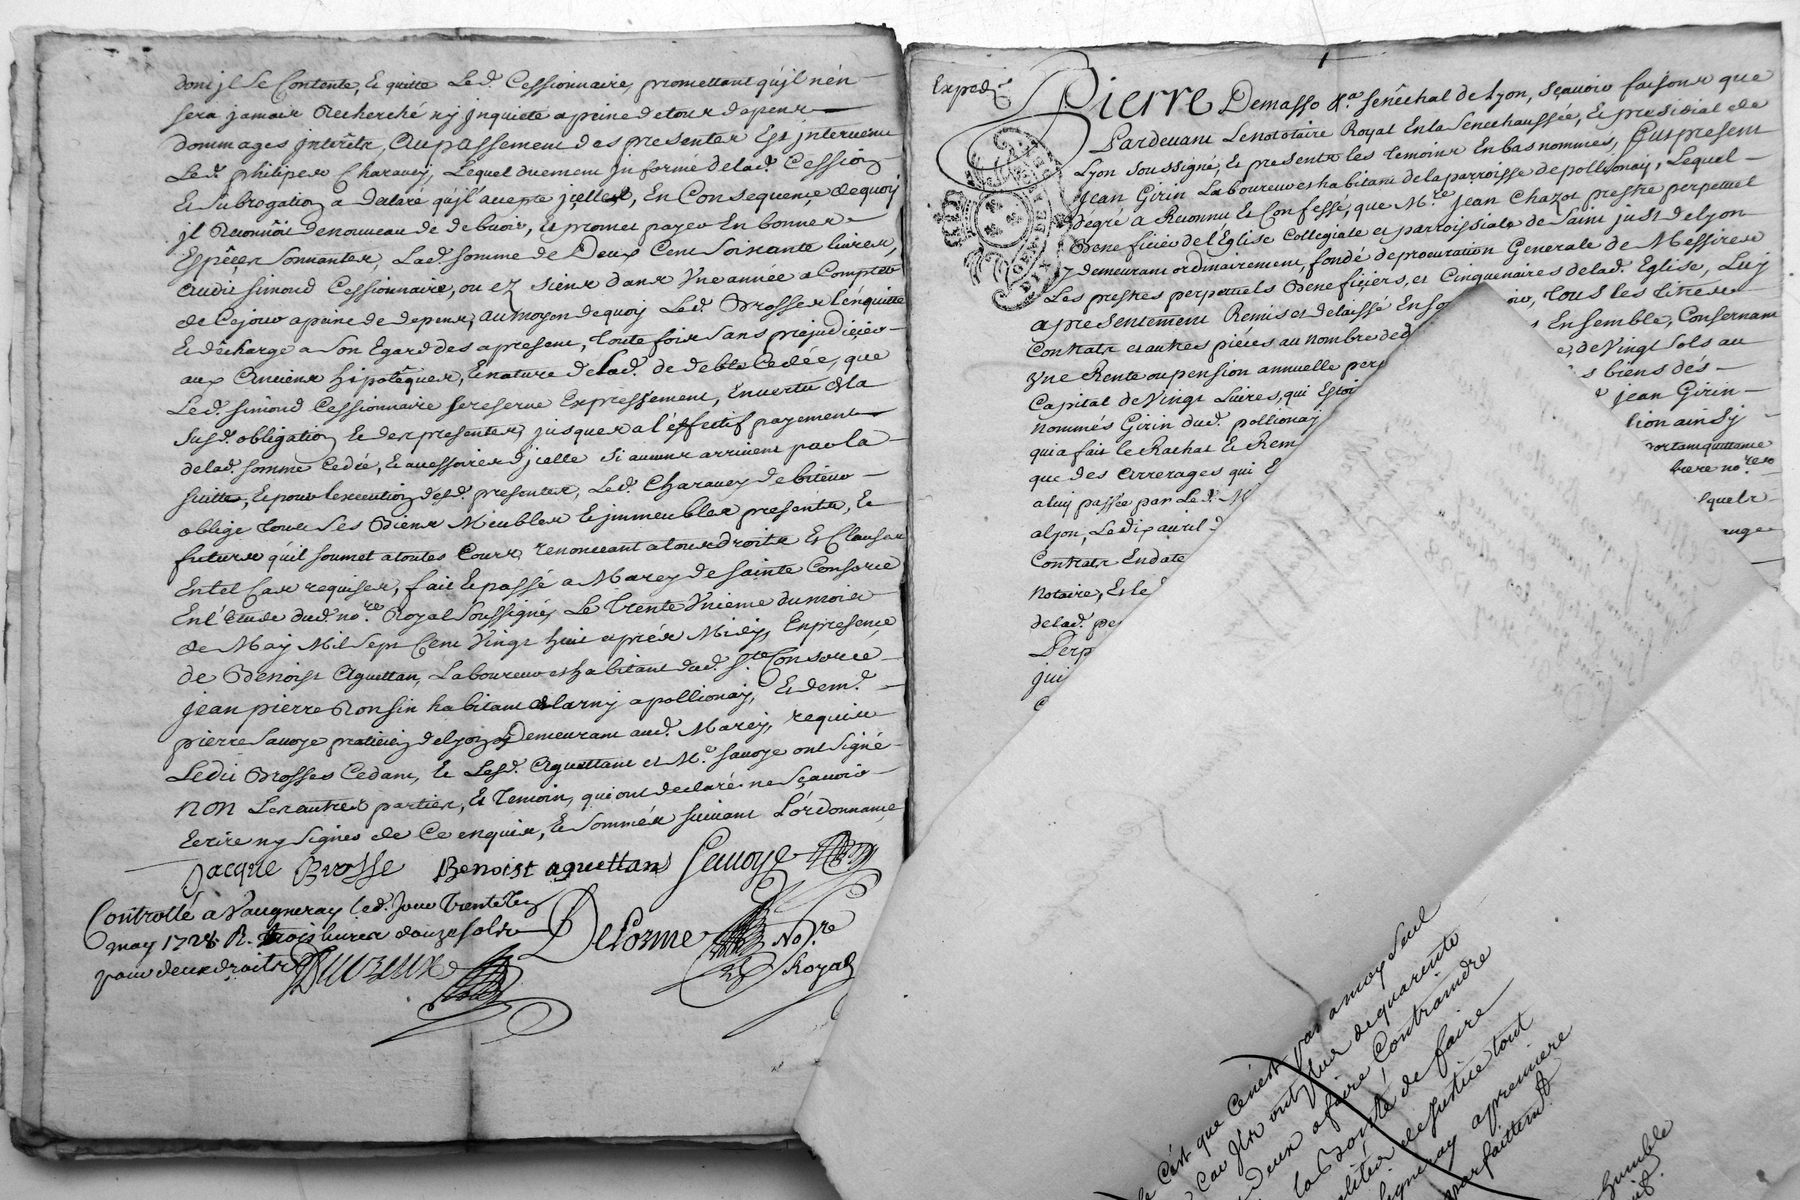 dont jl se Contente, et quitte Led. Cessionnaire, promettant qu'jl n'en
sera jamais Recherché ny jnquieté a peine de tous depens
dommages jnterêts, Au passement des presentes Est jntervenu
Led. philipes Charavey, Lequel duement jnformé de lad. Cession
Et subrogation a declaré qu'jl accepte jcelles, En Consequence de quoy
jl Reconnoit de nouveau de debvoir, Et promet payer En bonnes
Espêçes sonnantes, Lad. somme de Deux Cent Soixante livres,
audit simond Cessionnaire, ou ez siens dans Une année a Compter
de Ce jour a peine de depens, au moyen de quoy Led. Brosses l'en quitte
Et dêcharge a son Egard des a present, toute fois sans prejudiçier
aux Anciens hipotêques, Et nature de lad. de debte Cedée, que
Led. simond Cessionnaire se reserve Expressement, En vertu de la
susd. obligation Et des presentes, jusques a l'effectif payement
de lad. somme Cedée, Et accessoires d'jcelle si aucuns arrivent par la
suitte, Et pour l'execution desd. presentes, Led. Charavey debiteur
oblige tous ses Biens Meubles Et jmmeubles presents, Et
futurs qu'il soumet a toutes Cours, renonceant a tous droits Et Clauses
En tel Cas requises, fait Et passé a Marcy de sainte Consorce
En l'étude dud. no.re Royal soussigné, Le Trente Vnieme du mois
de May Mil sept Cent Vingt huit aprés Midy, En presence
de Benoist Aguettan, Laboureur et habitant dud. S.te Consorce
jean pierre Ronsin habitant de larny a pollionay, Et de m.e
pierre Sauoye praticien de lyon y Demeurant aud. Marcy, requis
Ledit Brosses Cedant, Et Lesd. Aguettant et M.e Sauoye ont signé
non Les autres parties, Et Temoin, qui ont declaré ne sçauoir
Ecrire ny signer de Ce enquis, Et sommés suiuant L'ordonnance
Jacque Brosse Benoist aguettans Sauoye
Controllé a Vaugneray led. Jour trente un
may 1728 R. trois liures douze sols
pour deux droits Duzeux
Delorme No.re
Royal
Exped.é
Pierre Demasso &.a senêchal de lyon, sçauoir faisons que
Pardeuant Le Notaire Royal En la Senechaussée, Et presidial de
Lyon soussigné, Et presents les temoins En bas nommés, fut present
Jean Girin Laboureur et habitant de la parroisse de pollionay, Lequel
degré a Reconnu Et Confessé, que M.re jean Chazot prestre perpetuel
Beneficier de l'Eglise Collegiale et parroissiale de Saint just de lyon
y demeurant ordinairement, fondé de procuration Generale de Messires
Les prestres perpetuels Beneficiers, et Cinquenaires de lad. Eglise, Luy
a presentement Remis et delaissé En son tous les titres
Contrats et autres piéces au nombre de d Ensemble, Consernant
Vne Rente ou pension annuelle per de Vingt sols au
Capital de Vingt Liures, qui Estoi s biens dés
nommés Girin dud. pollionay jean Girin
qui a fait le Rachat Et Rem lion ainsy
que des Arrerages qui E portant quittance
a luy passée par Led. M no.res
a lyon, Le dix auril d lesquels
Contrats En date
notaire, Et le
de lad. pe
Perp
jui
GEN DE LYON
DEUX
c'est que Ce n'est pas a moy seul
Car Jls ont plus de quarente
deux affaire Contraindre
la Bonté de faire
de Justice tout
a premiere
parfaittem.t
humble